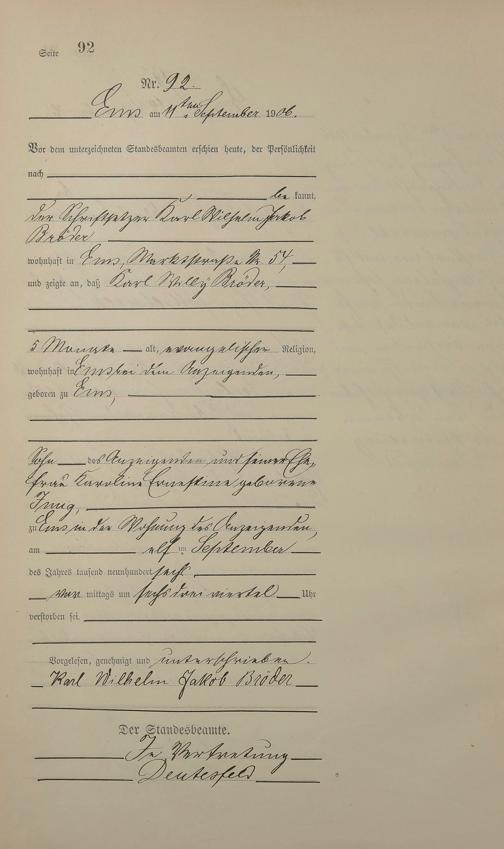 Seite 92
Nr. 92.
Ems am 11ten September 1906.
Vor dem unterzeichneten Standesbeamten erschien heute, der Persönlichkeit
nach
be kannt,
der Schriftsetzer Karl Wilhelm Jakob
Bröder
wohnhaft in Ems, Marktstraße Nr. 54,
und zeigte an, daß Karl Willy Bröder,
5 Monate alt, evangelischer Religion,
wohnhaft in Ems bei dem Anzeigenden,
geboren zu Ems,
Sohn des Anzeigenden und seiner Ehe,
frau Karoline Ernestine geborene
zu Ems in der Wohnung des Anzeigenden,
am elf ten September
des Jahres tausend neunhundert sechs
vor mittags um sechs drei viertel Uhr
verstorben sei.
Vorgelesen, genehmigt und unterschrieben.
Karl Wilhelm Jakob Bröder
Der Standesbeamte.
In Vertretung